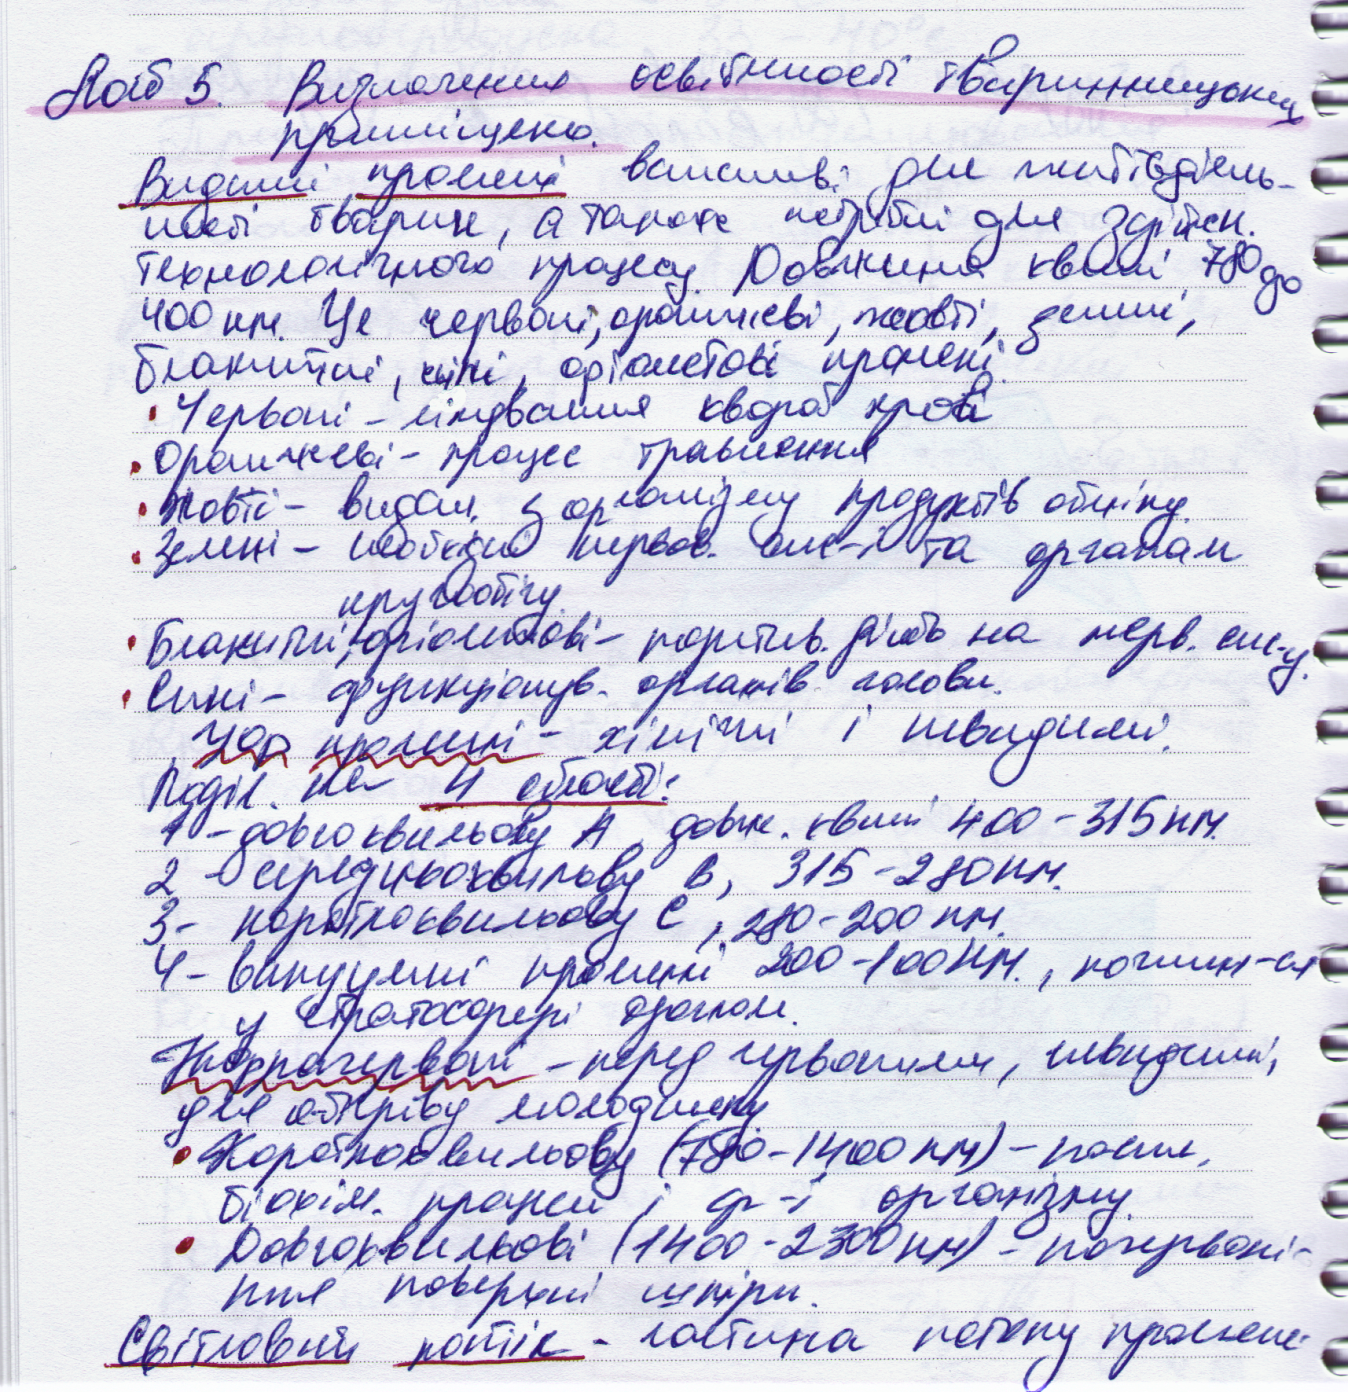 Лаб 5. Визначення освітленості тваринницьких
приміщень.
Видимі промені важливі для життєдіяль-
ності тварин, а також потрібні для здійсн.
технологічного процесу. Довжина хвилі 780 до
400 нм. Це червоні, оранжеві, жовті, зелені,
блакитні, сині, фіолетові промені.
• Червоні - лікування хвороб крові
• Оранжеві - процес травлення
• Жовті - видал. з організму продуктів обміну.
• Зелені - необхідні нервов. сис-і та органам
кругообігу.
• Блакитні, фіолетові - позитив. діють на нерв. сис-у.
• Сині - функціонув. органів голови.
УФ промені - хімічні і невидимі.
Поділ. на 4 області:
1 - довгохвильову А, довж. хвилі 400-315 нм.
2 - середньохвильову В, 315-280 нм.
3 - короткохвильову С, 280-200 нм.
4 - вакуумні промені 200-100 нм., поглин-ся
у стратосфері озоном.
Інфрачервоні - перед червоними, невидимі,
для обігріву молодняку
• Короткохвильову (780-1400 нм) - посил.
біохім. процеси і ф-ї організму.
• Довгохвильові (1400-2300 нм) - почервоні-
ння поверхні шкіри.
Світловий потік - частина потоку промене-